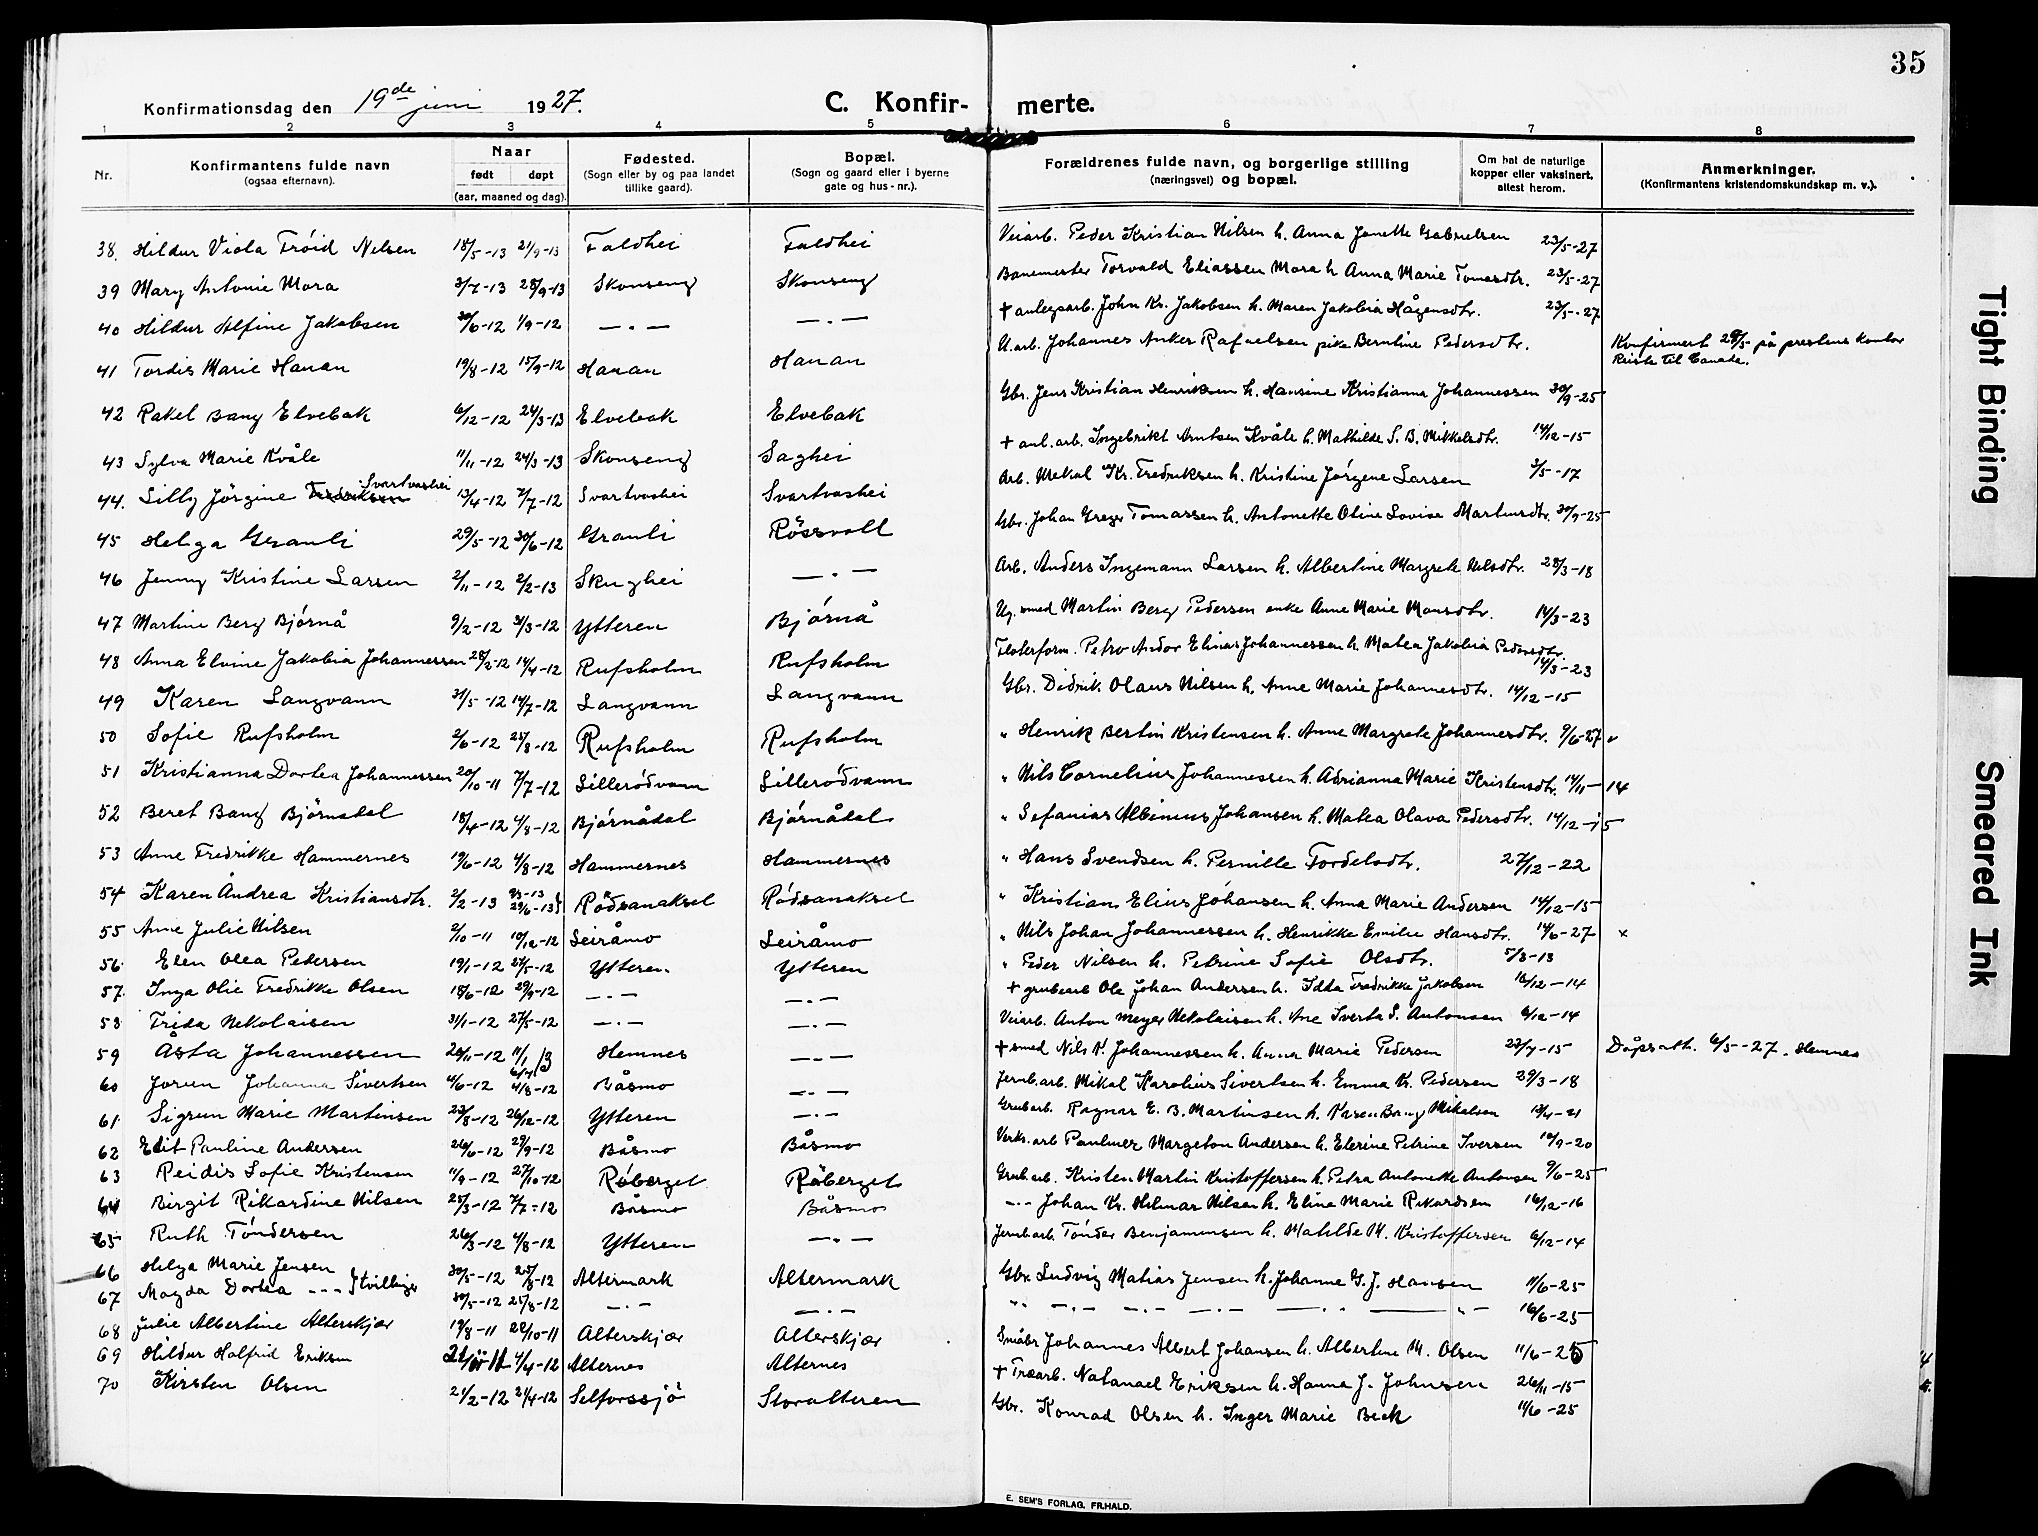 35
Konfirmationsdag den 19de juni 1927.
C. Konfir- merte.
1 2 3 4 5 6 7 8
Nr. Konfirmantens fulde navn (ogsaa efternavn). Naar født døpt (aar, maaned og dag). Fødested. (Sogn eller by og paa landet tillike gaard). Bopæl. (Sogn og gaard eller i byerne gate og hus-nr.). Forældrenes fulde navn, og borgerlige stilling (næringsvei) og bopæl. Om hat de naturlige kopper eller vaksinert, attest herom. Anmerkninger. (Konfirmantens kristendomskundskap m. v.).
38. Hildur Viola Frøid Nilsen 18/5-13 21/9-13 Faldhei Faldhei Veiarb. Peder Kristian Nilsen h. Anna Janette Gabrielsen 23/5-27
39 Mary Antonie Mora 3/7-13 28/9-13 Skonseng Skonseng Banemester Torvald Eliassen Mora h. Anna Marie Tomasdtr. 23/5-27
40 Hildur Alfine Jakobsen 30/6-12 1/9-12 —.— —.— † anlegsarb. John Kr. Jakobsen h. Maren Jakobia Hågensdtr. 23/5-27
41 Tordis Marie Hauan 19/8-12 15/9-12 Hauan Hauan Johannes Anker Rafaelsen pike Berntine Pedersdtr. Konfirmert 28/5 på prestens kontor
Reiste til Canada.
42 Rakel Bang Elvebak 6/12-12 24/3-13 Elvebak Elvebak Gbr. Jens Kristian Henriksen h. Hansine Kristianna Johannessen 30/9-25
43 Sylva Marie Kvåle 11/11-12 24/3-13 Skonseng Saghei † anl.arb. Ingebrikt Arntsen Kvåle h. Mathilde S. B. Mikkelsdtr. 14/12-15
44. Lilly Jørgine Fredriksen Svartvashei 13/4-12 7/7-12 Svartvashei Svartvashei Arb. Mekal Kr. Fredriksen h. Kristine Jørgene Larsen 3/5-17
45 Helga Granli 29/5-12 30/6-12 Granli Rössvoll Gbr. Johan Greger Tomassen h. Antonette Oline Lovise Martinsdtr. 30/9-25
46 Jenny Kristine Larsen 2/11-12 2/2-13 Skughei —.— Arb. Anders Ingemann Larsen h. Albertine Margrete Nilsdtr. 28/3-18
47 Martine Berg Bjørnå 9/2-12 31/3-12 Ytteren Bjørnå Ug. smed Martin Berg Pedersen enke Anne Marie Monsdtr. 14/3-23
48 Anna Elvine Jakobia Johannessen 28/2-12 14/4-12 Rufsholm Rufsholm Fløterform. Petro Andor Elinas Johannessen h. Matea Jakobia Pedersdtr. 14/3-23
49 Karen Langvann 31/5-12 14/7-12 Langvann Langvann Gbr. Didrik Olaus Nilsen h. Anne Marie Johannesdtr. 14/12-15
50 Sofie Rufsholm 2/6-12 25/8-12 Rufsholm Rufsholm " Henrik Bertin Kristensen h. Anne Margrete Johannesdtr. 9/6-27
51 Kristianna Dortea Johannessen 20/10-11 7/7-12 Lillerødvann Lillerødvann " Nils Cornelius Johannessen h. Adrianna Marie Kristensdtr. 14/11-14
52 Beret Bang Bjørnådal 18/4-12 4/8-12 Bjørnådal Bjørnådal " Sefanias Albinius Johansen h. Matea Olava Pedersdtr. 14/12-15
53 Anne Fredrikke Hammernes 19/6-12 4/8-12 Hammernes Hammernes " Hans Svendsen h. Pernille Tordelsdtr. 27/12-22
54 Karen Andrea Kristiansdtr. 2/2-13 29/6-13 Rødsanaksel Rødsanaksel " Kristian Elius Johansen h. Anna Marie Andersen 14/12-15
55 Anne Julie Nilsen 2/10-11 10/12-12 Leiråmo Leiråmo " Nils Johan Johannessen h. Henrikke Emilie Hansdtr. 14/6-27 x
56 Elen Olea Pedersen 19/1-12 27/5-12 Ytteren Ytteren " Peder Nilsen h. Petrine Sofie Olsdtr. 5/3-13
57. Inga Olie Fredrikke Olsen 18/6-12 29/9-12 —.— —.— † grubearb Ole Johan Andersen h. Idda Fredrikke Jakobsen 16/12-14
58 Frida Nekolaisen 31/1-12 27/5-12 —.— —.— Veiarb. Anton Meyer Nekolaisen h. Ane Sverta S. Antonsen 6/12-14
59 Åsta Johannessen 28/11-12 11/1 13 Hemnes —.— † smed Nils K. Johannessen h. Anna Marie Pedersen 23/7-15 Dåpsatt. 6/5-27. Hemnes
60 Jorun Johanna Sivertsen 4/6-12 4/8-12 Båsmo —.— Jernb.arb. Mikal Karolius Sivertsen h. Emma K. Pedersen 29/3-18
61 Sigrun Marie Martinsen 23/8-12 26/12-12 Ytteren —.— Grub.arb. Ragnar E. B. Martinsen h. Karen Bang Mikalsen 13/4-21
62 Edit Pauline Andersen 26/6-12 29/9-12 Båsmo Båsmo Verks.arb Paulmer Margeton Andersen h. Elerine Petrine Iversen 10/9-20
63 Reidis Sofie Kristensen 11/9-12 27/10-12 Røberget Røberget Grub.arb. Kristen Martin Kristoffersen h. Petra Antonette Antonsen 9/6-25
64 Birgit Rikardine Nilsen 25/3-12 7/7-12 Båsmo Båsmo —.— Johan Kr. Hilmar Nilsen h. Eline Marie Rikardsen 16/12-16
65 Ruth Tøndersen 26/3-12 4/8-12 Ytteren —.— Jernb.arb. Tønder Benjaminsen h. Matilde M. Kristoffersen 6/12-14
66 Helga Marie Jensen 30/5-12 25/8-12 Altermark Altermark Gbr. Ludvig Matias Jensen h. Johanne G. J. Hansen 11/6-25
67 Magda Dortea --- } tvillinger 30/5-12 25/8-12 —.— —.— " —.— —.— —.— 16/6-25
68 Julie Albertine Alterskjær 19/8-11 22/10-11 Alterskjær Alterskjær Småbr Johannes Albert Johansen h. Albertine M. Olsen 11/6-25
69 Hildur Halfrid Eriksen 4/4-12 Alternes Alternes † Træarb. Natanael Eriksen h. Hanna J. Johnsen 26/11-15
70 Kirsten Olsen 21/2-12 21/4-12 Selforssjö Storalteren Gbr. Konrad Olsen h. Inger Marie Beck 11/6-25
E. SEM'S FORLAG, FR.HALD.
Tight Binding
Smeared Ink